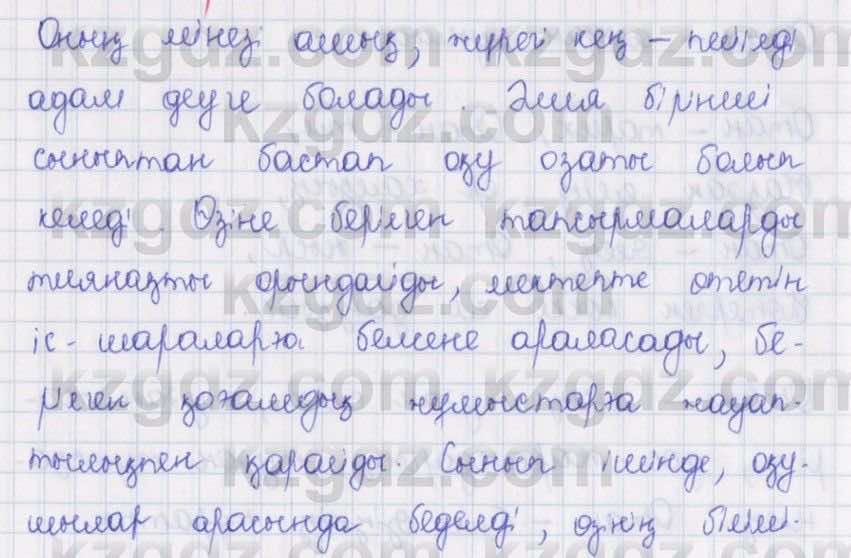 Оның мінезі ашық, жүрегі кең – пейілді
адам деуге болады. Әлия бірінші
сыныптан бастап оқу озаты болып
келеді. Өзіне берілген тапсырмаларды
тиянақты орындайды, мектепте өтетін
іс-шараларға белсене араласады, бе-
рілген қоғамдық жұмыстарға жауап-
тылықпен қарайды. Сынып ішінде, оқу-
шылар арасында беделді, өзінің білімі-
kzgdz.com